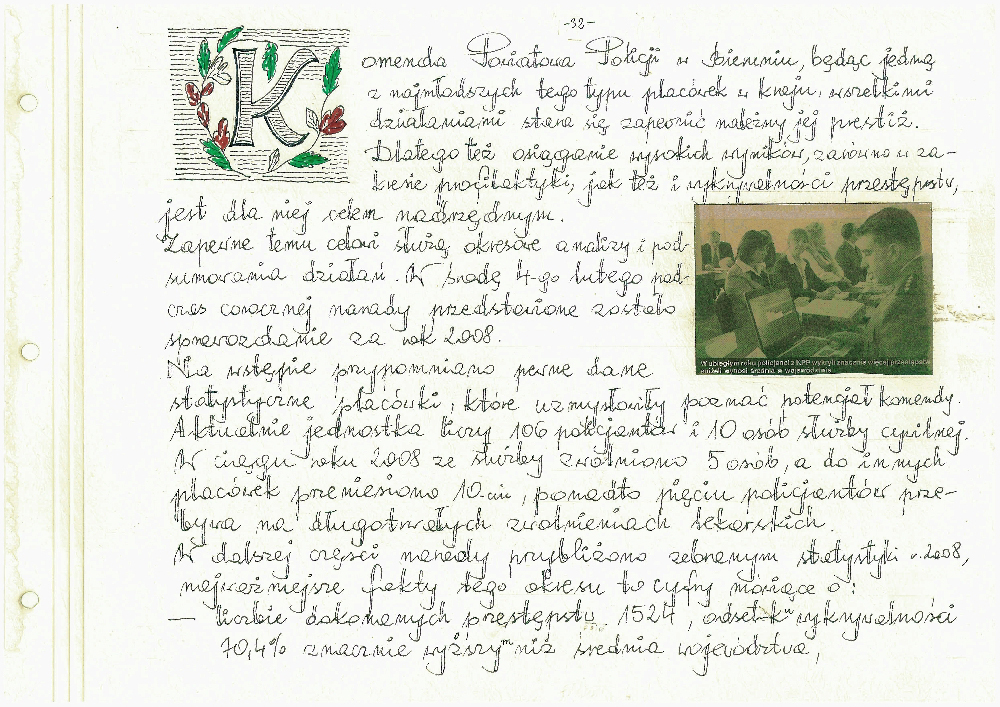 -32-
Komenda Powiatowa Policji w Bieruniu, będąc jedną
z najmłodszych tego typu placówek w kraju, wszelkimi
działaniami stara się zapewnić należny jej prestiż.
Dlatego też osiąganie wysokich wyników, zarówno w za-
kresie profilaktyki, jak też i wykrywalności przestępstw,
jest dla niej celem nadrzędnym.
Zapewne temu celowi służą okresowe analizy i pod-
sumowania działań. W środę 4-go lutego pod-
czas corocznej narady przedstawione zostało
sprawozdanie za rok 2008.
W ubiegłym roku policjanci z KPP wykryli znacznie więcej przestępstw
aniżeli wynosi średnia w województwie.
Na wstępie przypomniano pewne dane
statystyczne placówki, które uzmysłowiły poznać potencjał komendy.
Aktualnie jednostka liczy 106 policjantów i 10 osób służby cywilnej.
W ciągu roku 2008 ze służby zwolniono 5 osób, a do innych
placówek przeniesiono 10-ciu, ponadto pięciu policjantów prze-
bywa na długotrwałych zwolnieniach lekarskich.
W dalszej części narady przybliżono zebranym statystyki r. 2008,
najważniejsze fakty tego okresu to cyfry mówiące o:
— liczbie dokonanych przestępstw 1524, odsetek wykrywalności
70,4% znacznie wyższy niż średnia województwa,